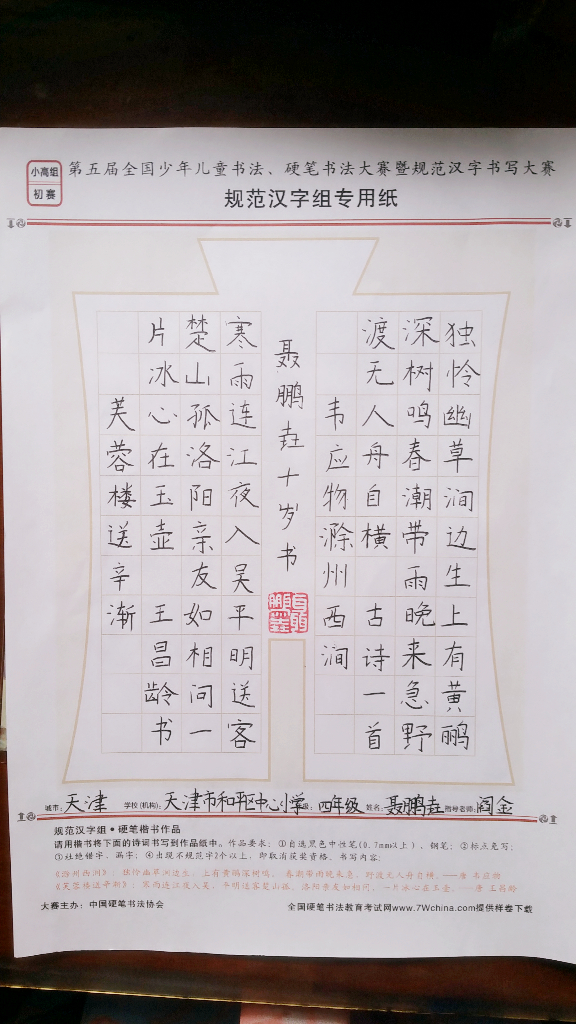 小高组
初赛
第五届全国少年儿童书法、硬笔书法大赛暨规范汉字书写大赛
规范汉字组专用纸
独怜幽草涧边生上有黄鹂
深树鸣春潮带雨晚来急野
渡无人舟自横 古诗一首
韦应物滁州西涧
聂鹏垚十岁书
寒雨连江夜入吴平明送客
楚山孤洛阳亲友如相问一
片冰心在玉壶 王昌龄书
芙蓉楼送辛渐
城市：天津 学校(机构)：天津市和平区中心小学 年级：四年级 姓名：聂鹏垚 指导老师：阎金
规范汉字组·硬笔楷书作品
请用楷书将下面的诗词书写到作品纸中。作品要求：①自选黑色中性笔(0.7mm以上)、钢笔；②标点免写；
③杜绝错字、漏字；④出现不规范字2个以上，即取消获奖资格。书写内容：
《滁州西涧》：独怜幽草涧边生，上有黄鹂深树鸣。春潮带雨晚来急，野渡无人舟自横。——唐·韦应物
《芙蓉楼送辛渐》：寒雨连江夜入吴，平明送客楚山孤。洛阳亲友如相问，一片冰心在玉壶。——唐·王昌龄
大赛主办：中国硬笔书法协会 全国硬笔书法教育考试网www.7Wchina.com提供样卷下载